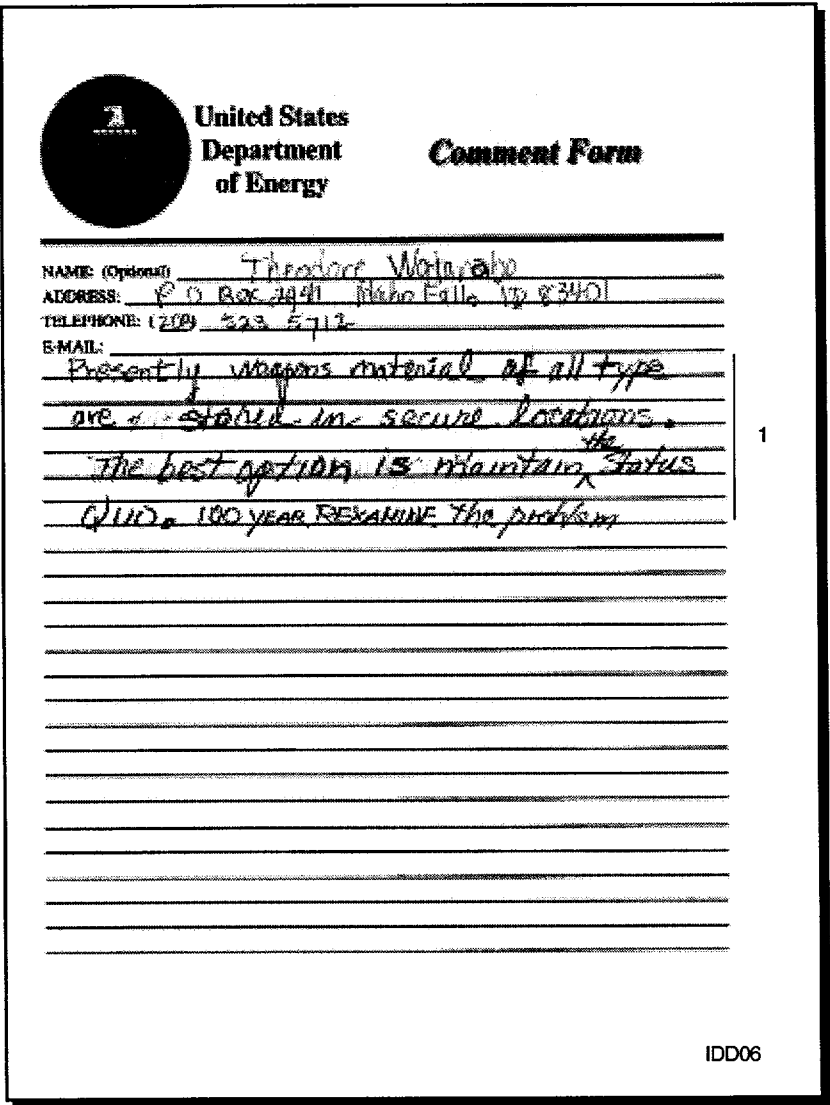 United States
Department
of Energy
Comment Form
NAME: (Optional) Theodore
ADDRESS: P O Box Idaho Falls ID 83401
TELEPHONE: (208) 523 5712
E-MAIL:
Presently weapons material of all type
are stored in secure locations.
The best option is maintain the Status
QUO. 100 YEAR REXAMINE the problem
1
IDD06